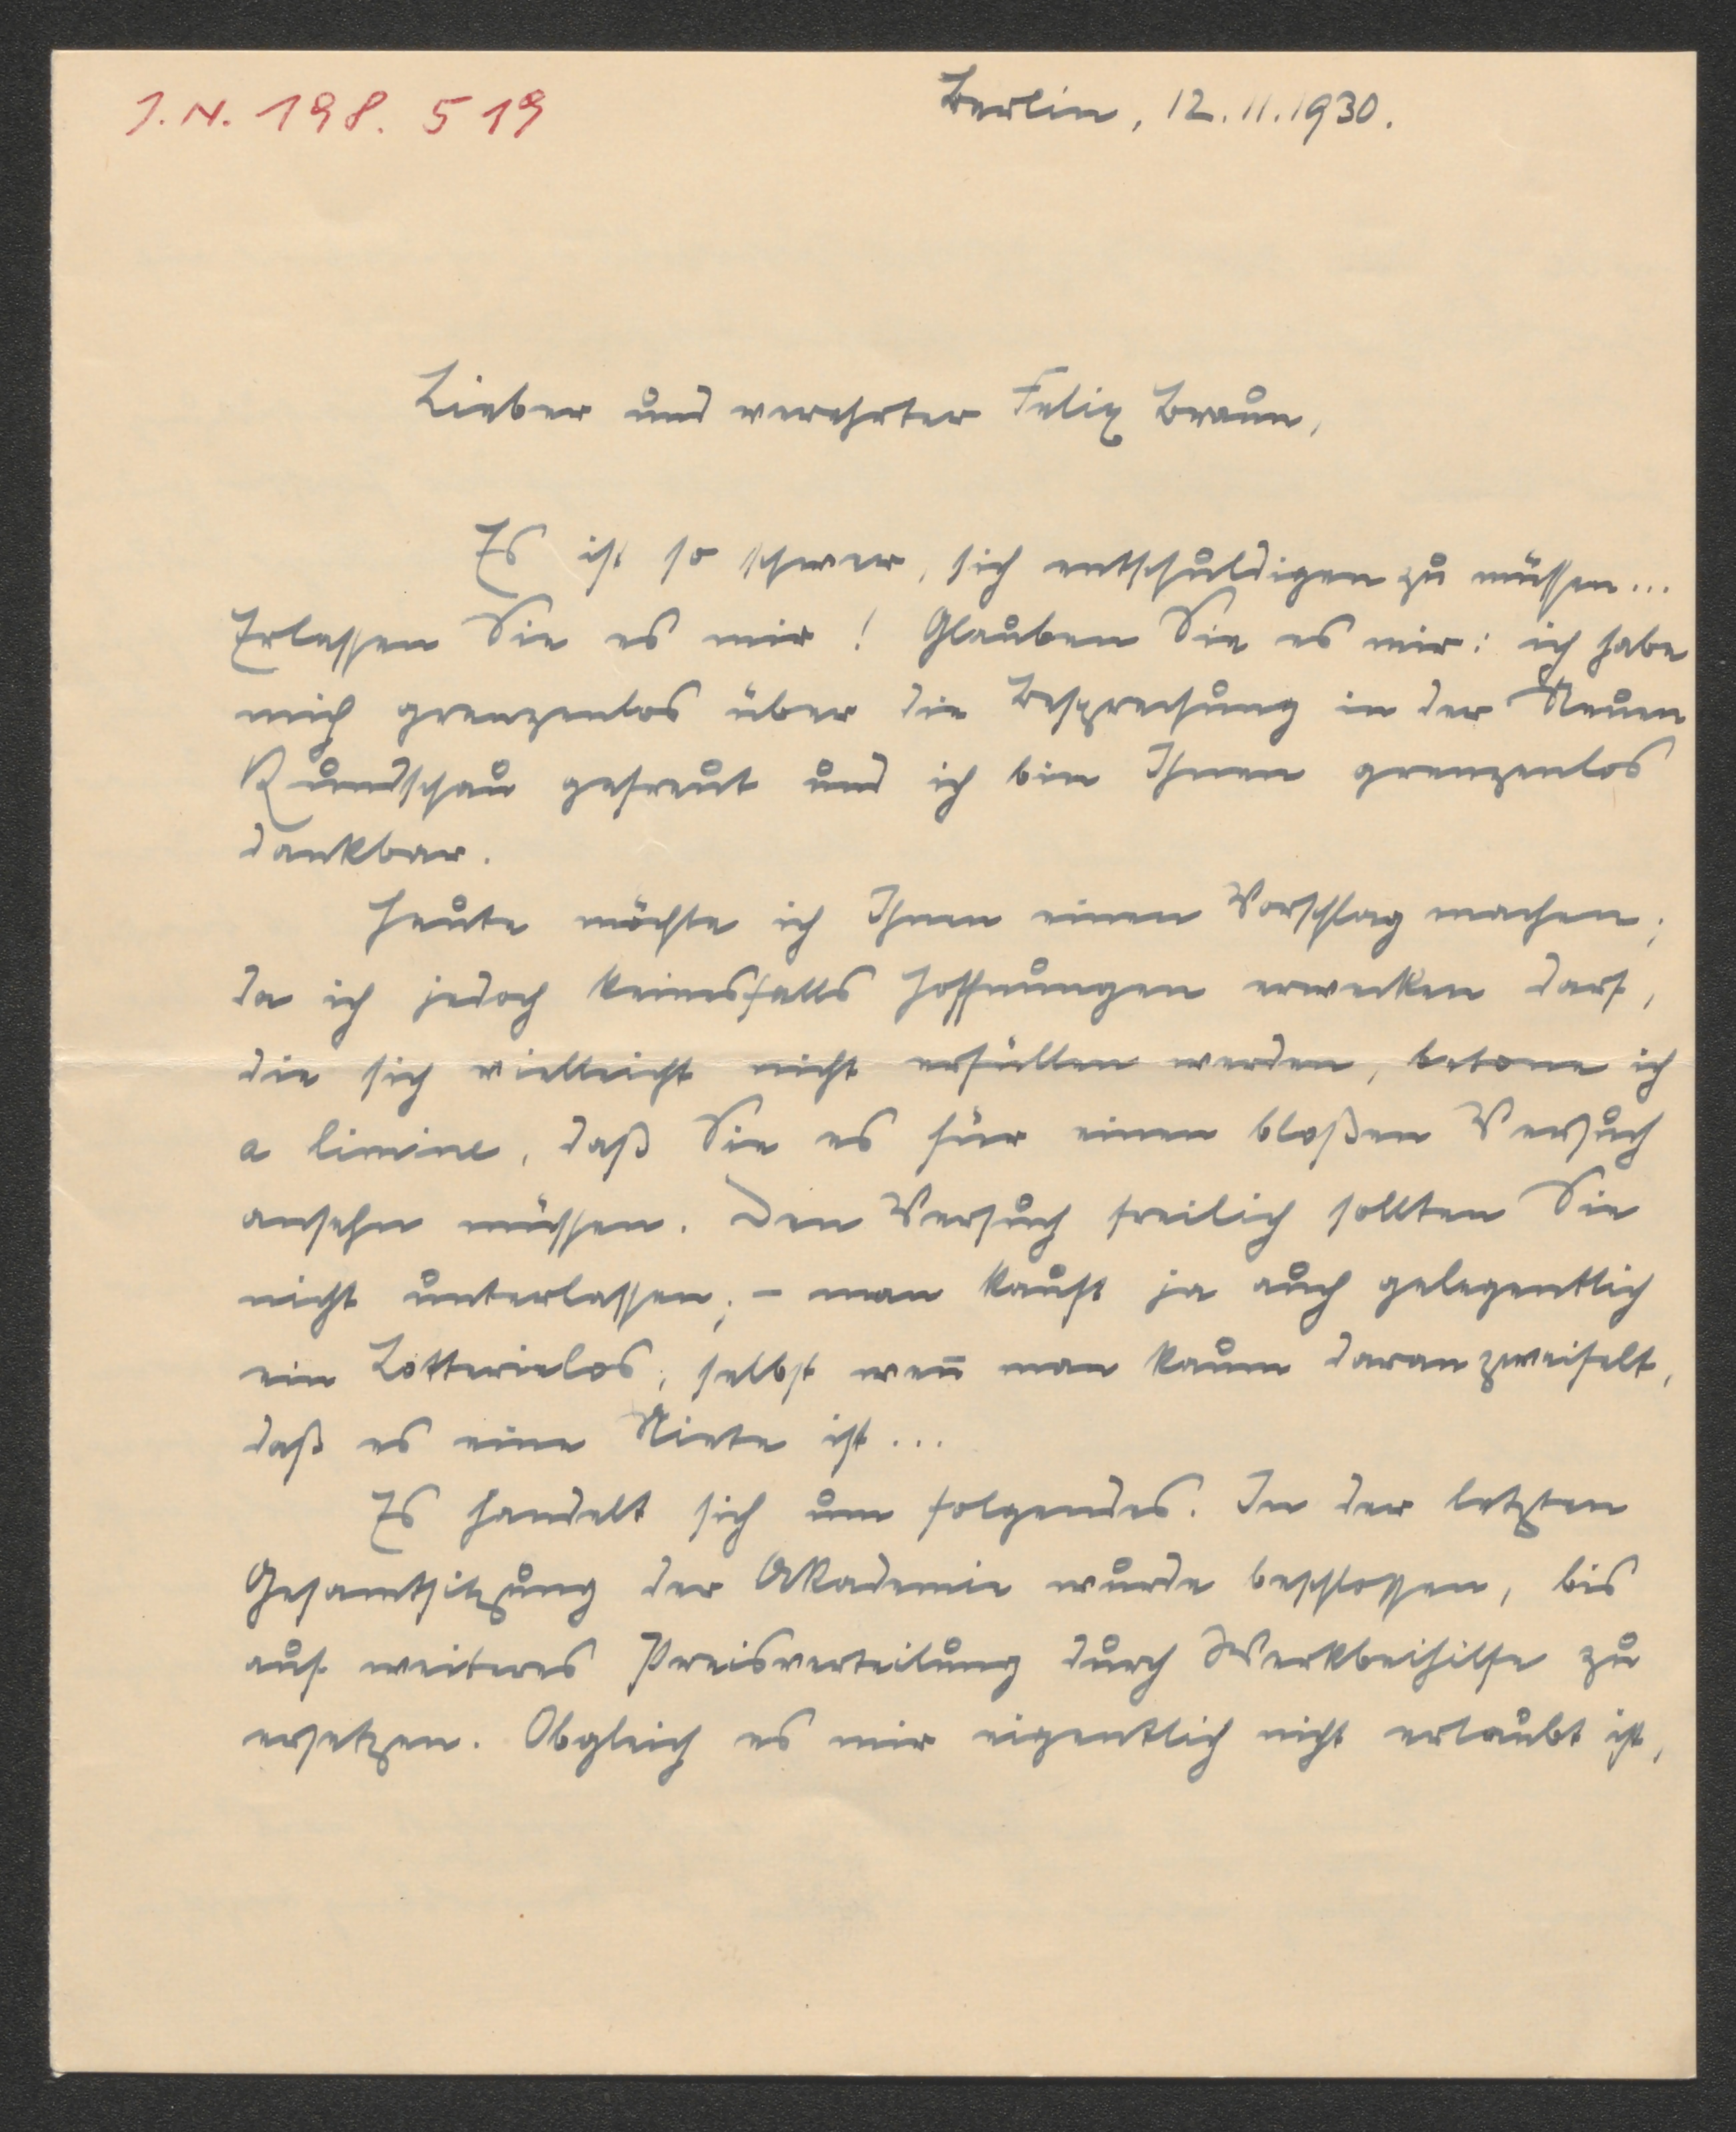 J.N. 198.519
Berlin, 12.11.1930.
Lieber und verehrter Felix Braun,
Es ist so schwer, sich entschuldigen zu müssen...
Erlassen Sie es mir! Glauben Sie es mir: ich habe
mich grenzenlos über die Besprechung in der Neuen
Rundschau gefreut und ich bin Ihnen grenzenlos
dankbar.
Heute möchte ich Ihnen einen Vorschlag machen;
da ich jedoch keinesfalls Hoffnungen erwecken darf,
die sich vielleicht nicht erfüllen werden, betone ich
a limine, daß Sie es für einen bloßen Versuch
ansehn müssen. Den Versuch freilich sollten Sie
nicht unterlassen; – man kauft ja auch gelegentlich
ein Lotterielos, selbst wen̄ man kaum daran zweifelt,
daß es eine Niete ist...
Es handelt sich um folgendes. In der letzten
Gesamtsitzung der Akademie wurde beschlossen, bis
auf weiteres Preisverteilung durch Werkbeihilfe zu
ersetzen. Obgleich es mir eigentlich nicht erlaubt ist,